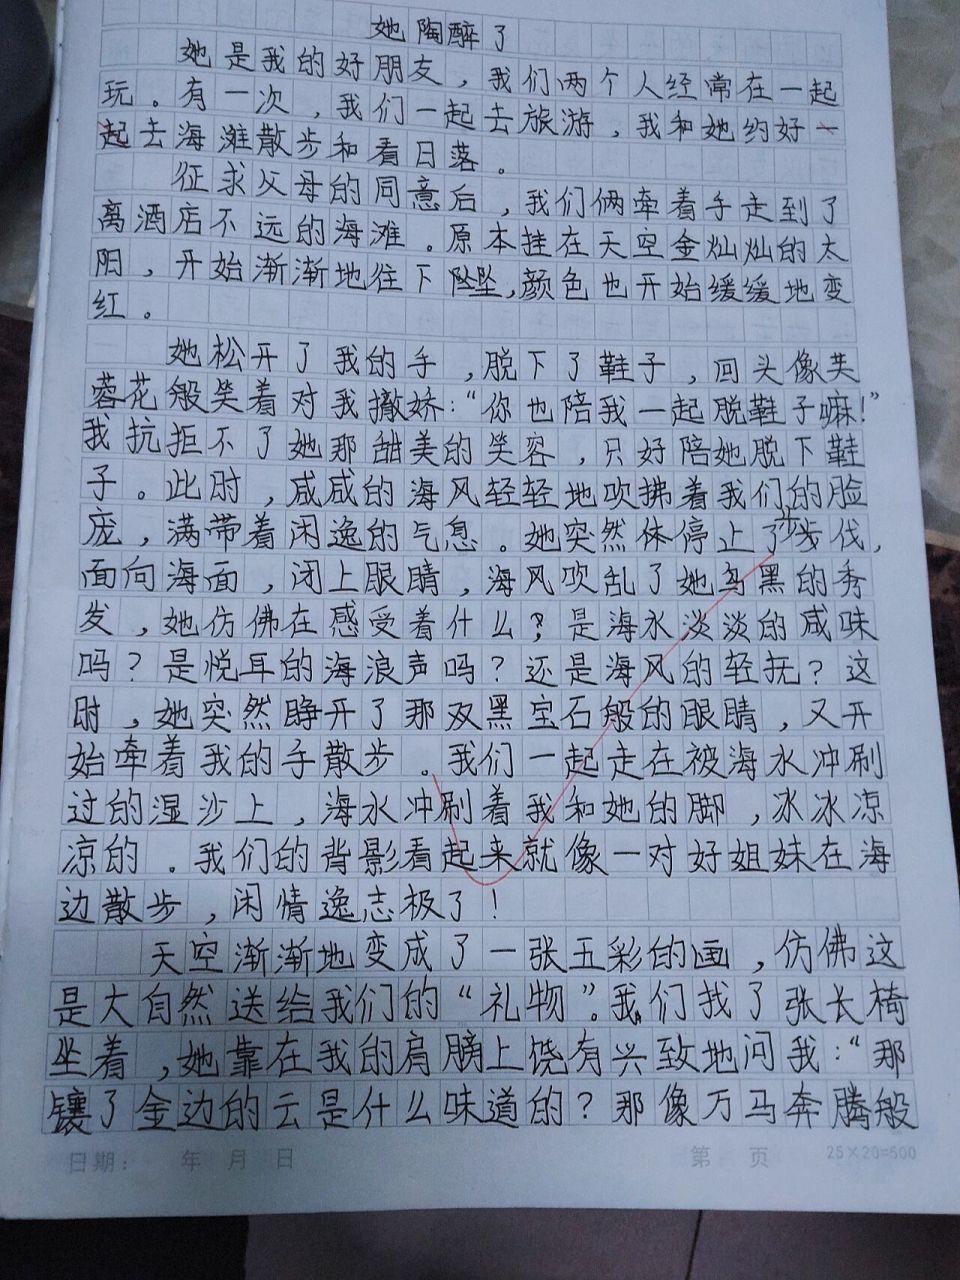 她陶醉了
她是我的好朋友，我们两个人经常在一起
玩。有一次，我们一起去旅游，我和她约好一
起去海滩散步和看日落。
征求父母的同意后，我们俩牵着手走到了
离酒店不远的海滩。原本挂在天空金灿灿的太
阳，开始渐渐地往下坠，颜色也开始缓缓地变
红。
她松开了我的手，脱下了鞋子，回头像芙
蓉花般笑着对我撒娇：“你也陪我一起脱鞋子嘛！”
我抗拒不了她那甜美的笑容，只好陪她脱下鞋
子。此时，咸咸的海风轻轻地吹拂着我们的脸
庞，满带着闲逸的气息。她突然停止了步伐，
面向海面，闭上眼睛，海风吹乱了她乌黑的秀
发，她仿佛在感受着什么？是海水淡淡的咸味
吗？是悦耳的海浪声吗？还是海风的轻抚？这
时，她突然睁开了那双黑宝石般的眼睛，又开
始牵着我的手散步。我们一起走在被海水冲刷
过的湿沙上，海水冲刷着我和她的脚，冰冰凉
凉的。我们的背影看起来就像一对好姐妹在海
边散步，闲情逸志极了！
天空渐渐地变成了一张五彩的画，仿佛这
是大自然送给我们的“礼物”。我们找了张长椅
坐着，她靠在我的肩膀上饶有兴致地问我：“那
镶了金边的云是什么味道的？那像万马奔腾般
日期： 年 月 日
第 页
25×20=500